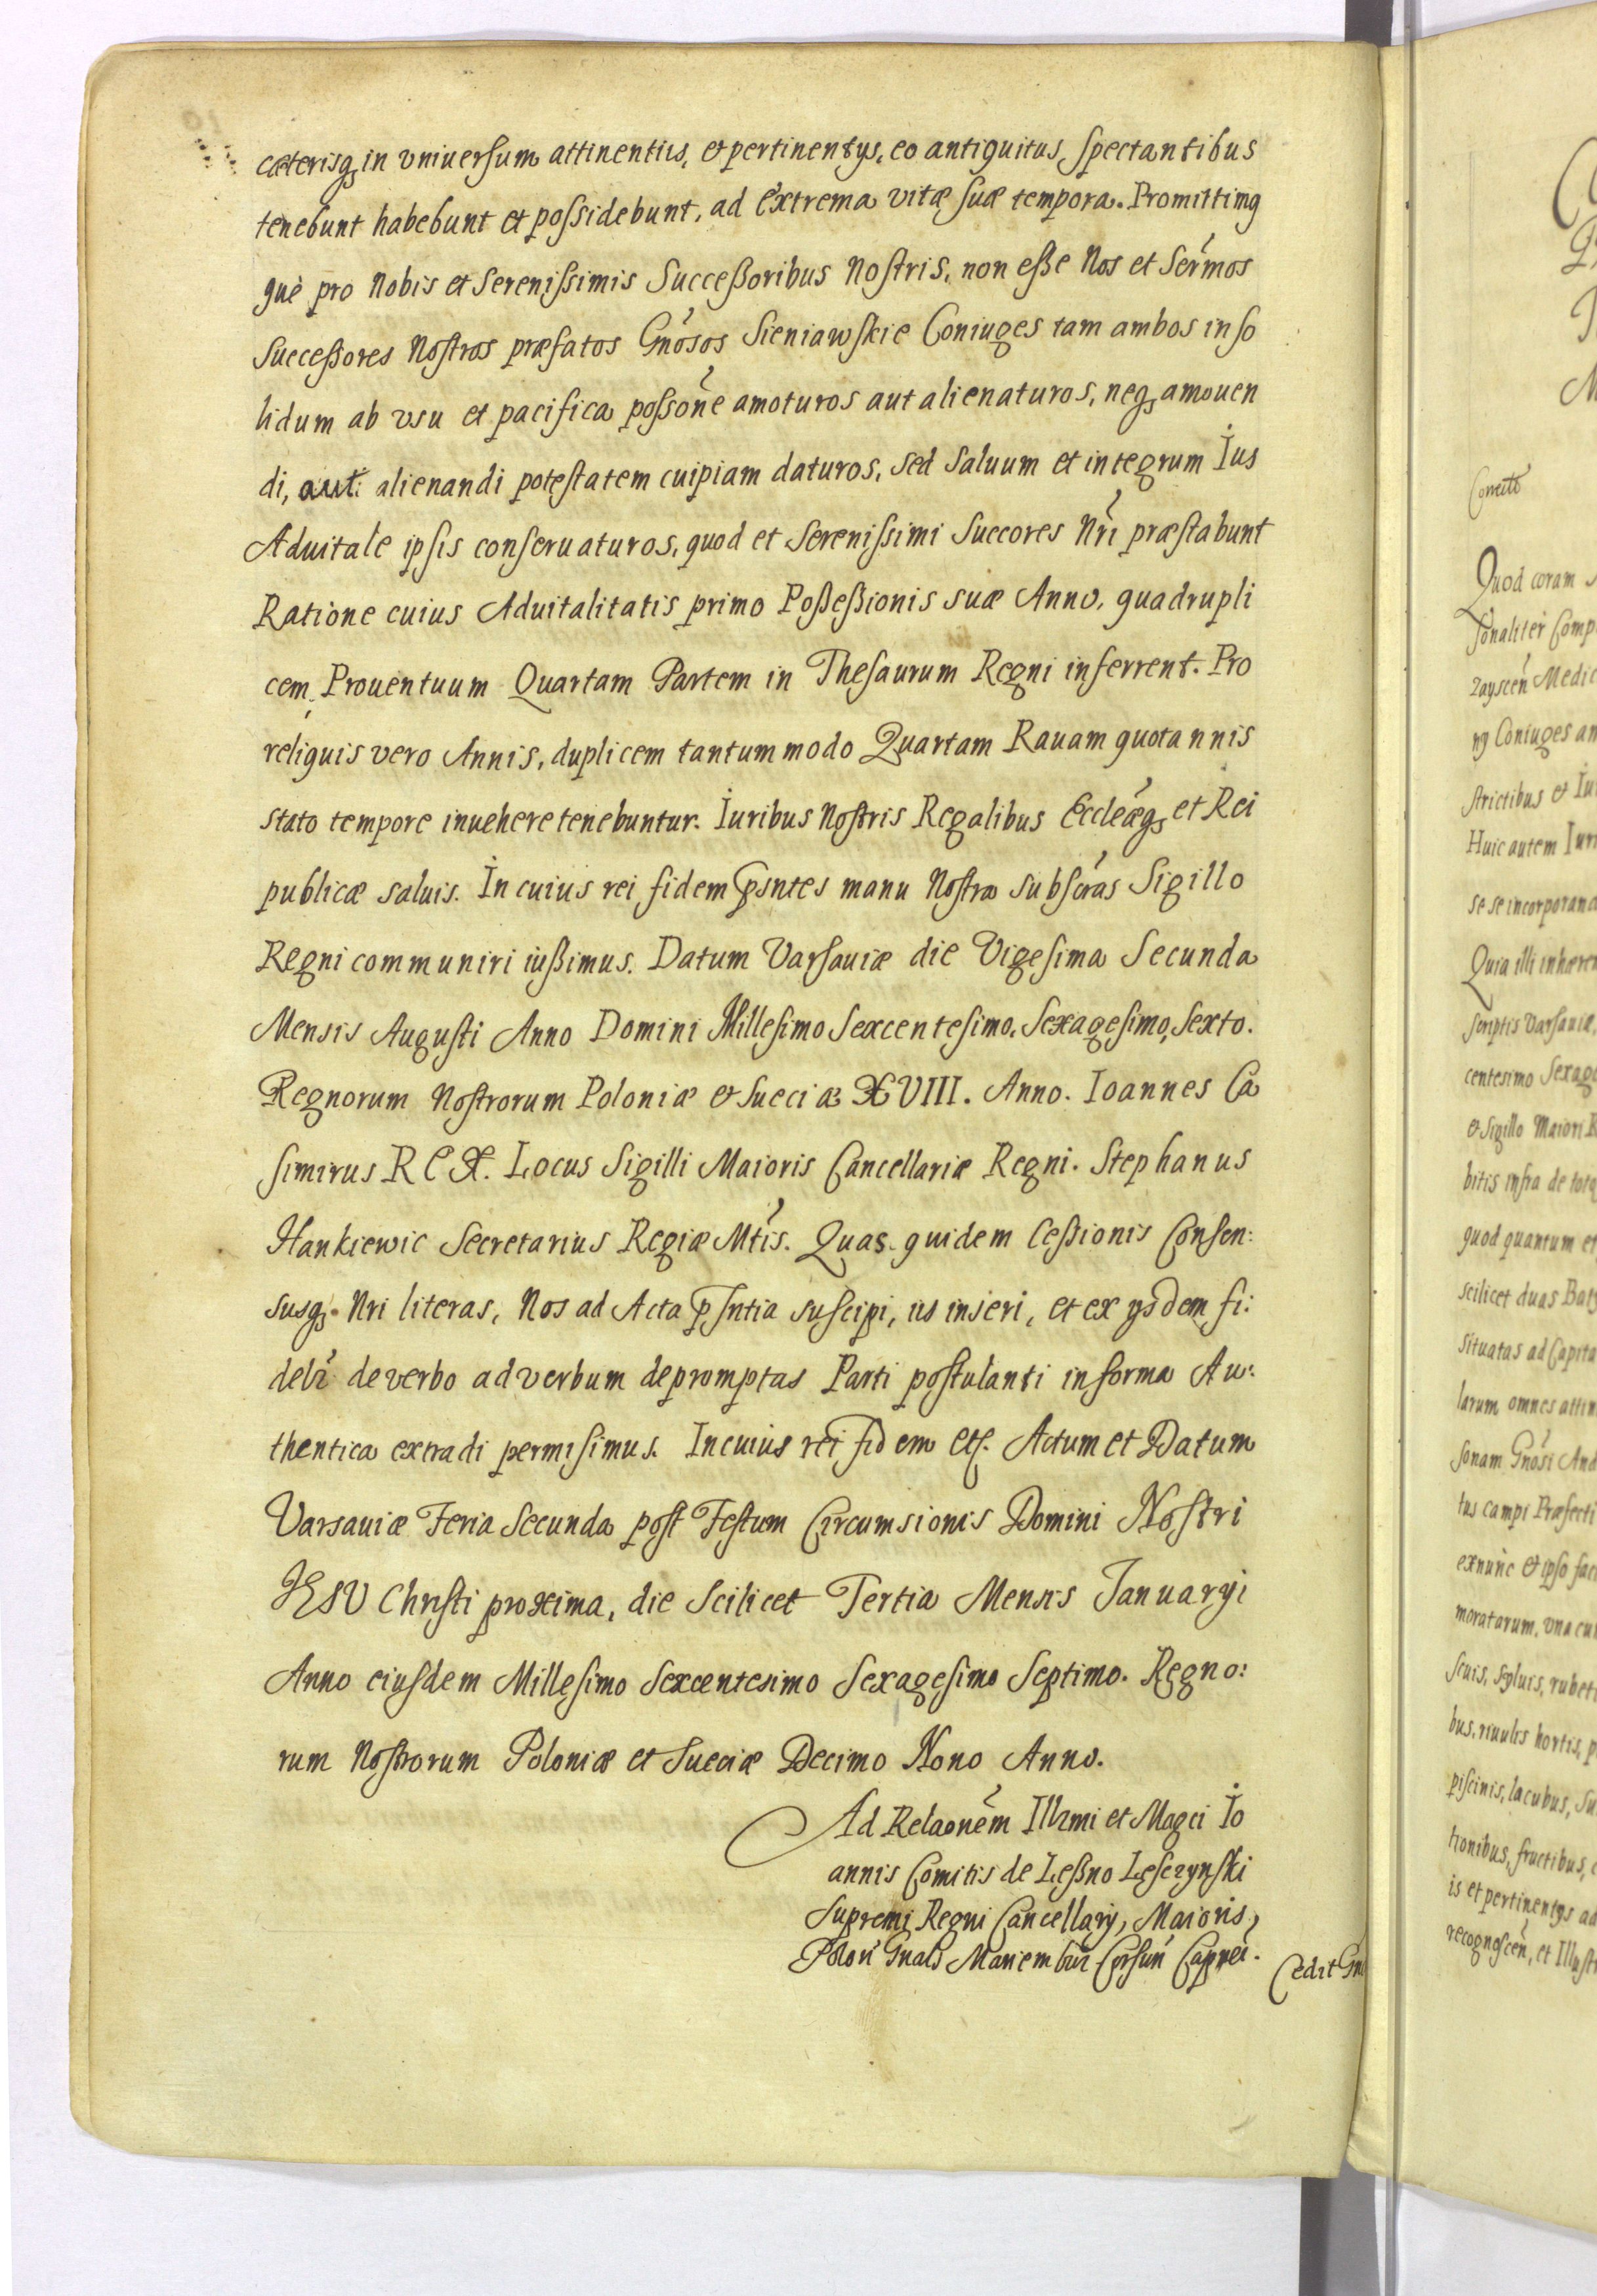 cæterisq₃ in vniuersum attinentiis, et pertinentijs, eo antiquitus spectantibus
tenebunt habebunt et possidebunt, ad extrema vitæ suæ tempora. Promittimq
què pro Nobis et Serenissimis Successoribus Nostris, non esse Nos et Sermos
Successores Nostros præfatos Gnosos Sieniawskie Coniuges tam ambos inso
lidum ab vsu et pacifica possone amoturos aut alienaturos, neq₃ amouen
di, aut alienandi potestatem cuipiam daturos, sed saluum et integrum Ius
Aduitale ipsis conseruaturos, quod et Serenissimi Succores Nri præstabunt
Ratione cuius Aduitalitatis primo Possessionis suæ Anno, quadrupli
cem Prouentuum Quartam Partem in Thesaurum Regni inferrent. Pro
reliquis vero Annis, duplicem tantummodo Quartam Rauam quotannis
stato tempore inuehere tenebuntur. Iuribus Nostris Regalibus Eccleæq₃ et Rei
publicæ saluis. In cuius rei fidem psntes manu Nostra subscras Sigillo
Regni communiri iussimus. Datum Varsauiæ die Vigesima Secunda
Mensis Augusti Anno Domini Millesimo Sexcentesimo, Sexagesimo, Sexto.
Regnorum Nostrorum Poloniæ et Sueciæ XVIII. Anno. Ioannes Ca
simirus REX. Locus Sigilli Maioris Cancellariæ Regni. Stephanus
Hankiewic Secretarius Regiæ Mtis. Quas quidem Cessionis Consen:
susq₃ Nri literas, Nos ad Acta psntia suscipi, iis inseri, et ex ijsdem fi:
deli de verbo ad verbum depromptas Parti postulanti in forma Au:
thentica extradi permisimus. In cuius rei fidem etc. Actum et Datum
Varsauiæ Feria Secunda post Festum Circumsionis Domini Nostri
IESV Christi proxima, die Scilicet Tertia Mensis Januaryi
Anno eiusdem Millesimo Sexcentesimo Sexagesimo Septimo. Regno:
rum Nostrorum Poloniæ et Sueciæ Decimo Nono Anno.
Ad Relaonem Illrmi et Magci Io
annis Comitis de Lessno Lesczynski
Supremi Regni Cancellarij, Maioris,
Polon Gnalis Mariembur Corsun Capnei.
Cedit
Quod coram
sonaliter Comp
Medic
Coniuges am
strictibus et Iu
Huic autem Iuri
se se incorporand
Quia illi inhæren
scriptis Varsauiæ,
centesimo Sexage
et Sigillo Maiori R
bitis infra de tota
quod quantum et
scilicet duas Bat
situatas ad Capita
larum omnes attin
sonam Gnosi And
tus campi Præfecti
exnunc et ipso fac
moratarum, vna cu
syluis, rubeti
bus, riuulis hortis, p
piscinis, lacubus, su
fructibus,
is et pertinentijs ad
recognoscen, et Illustr